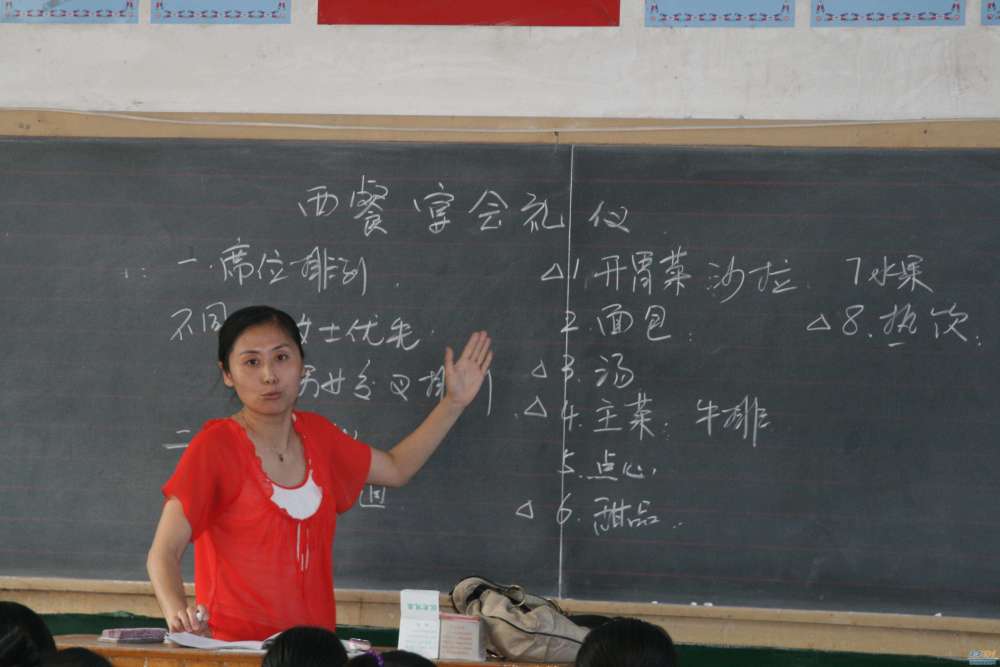 西餐宴会礼仪
一.席位排列.
不同 女士优先.
男女交叉排列
二
△1 开胃菜 沙拉. 7水果
2. 面包. △8.热饮.
△3.汤
△4.主菜:牛排
5.点心.
△6.甜品.